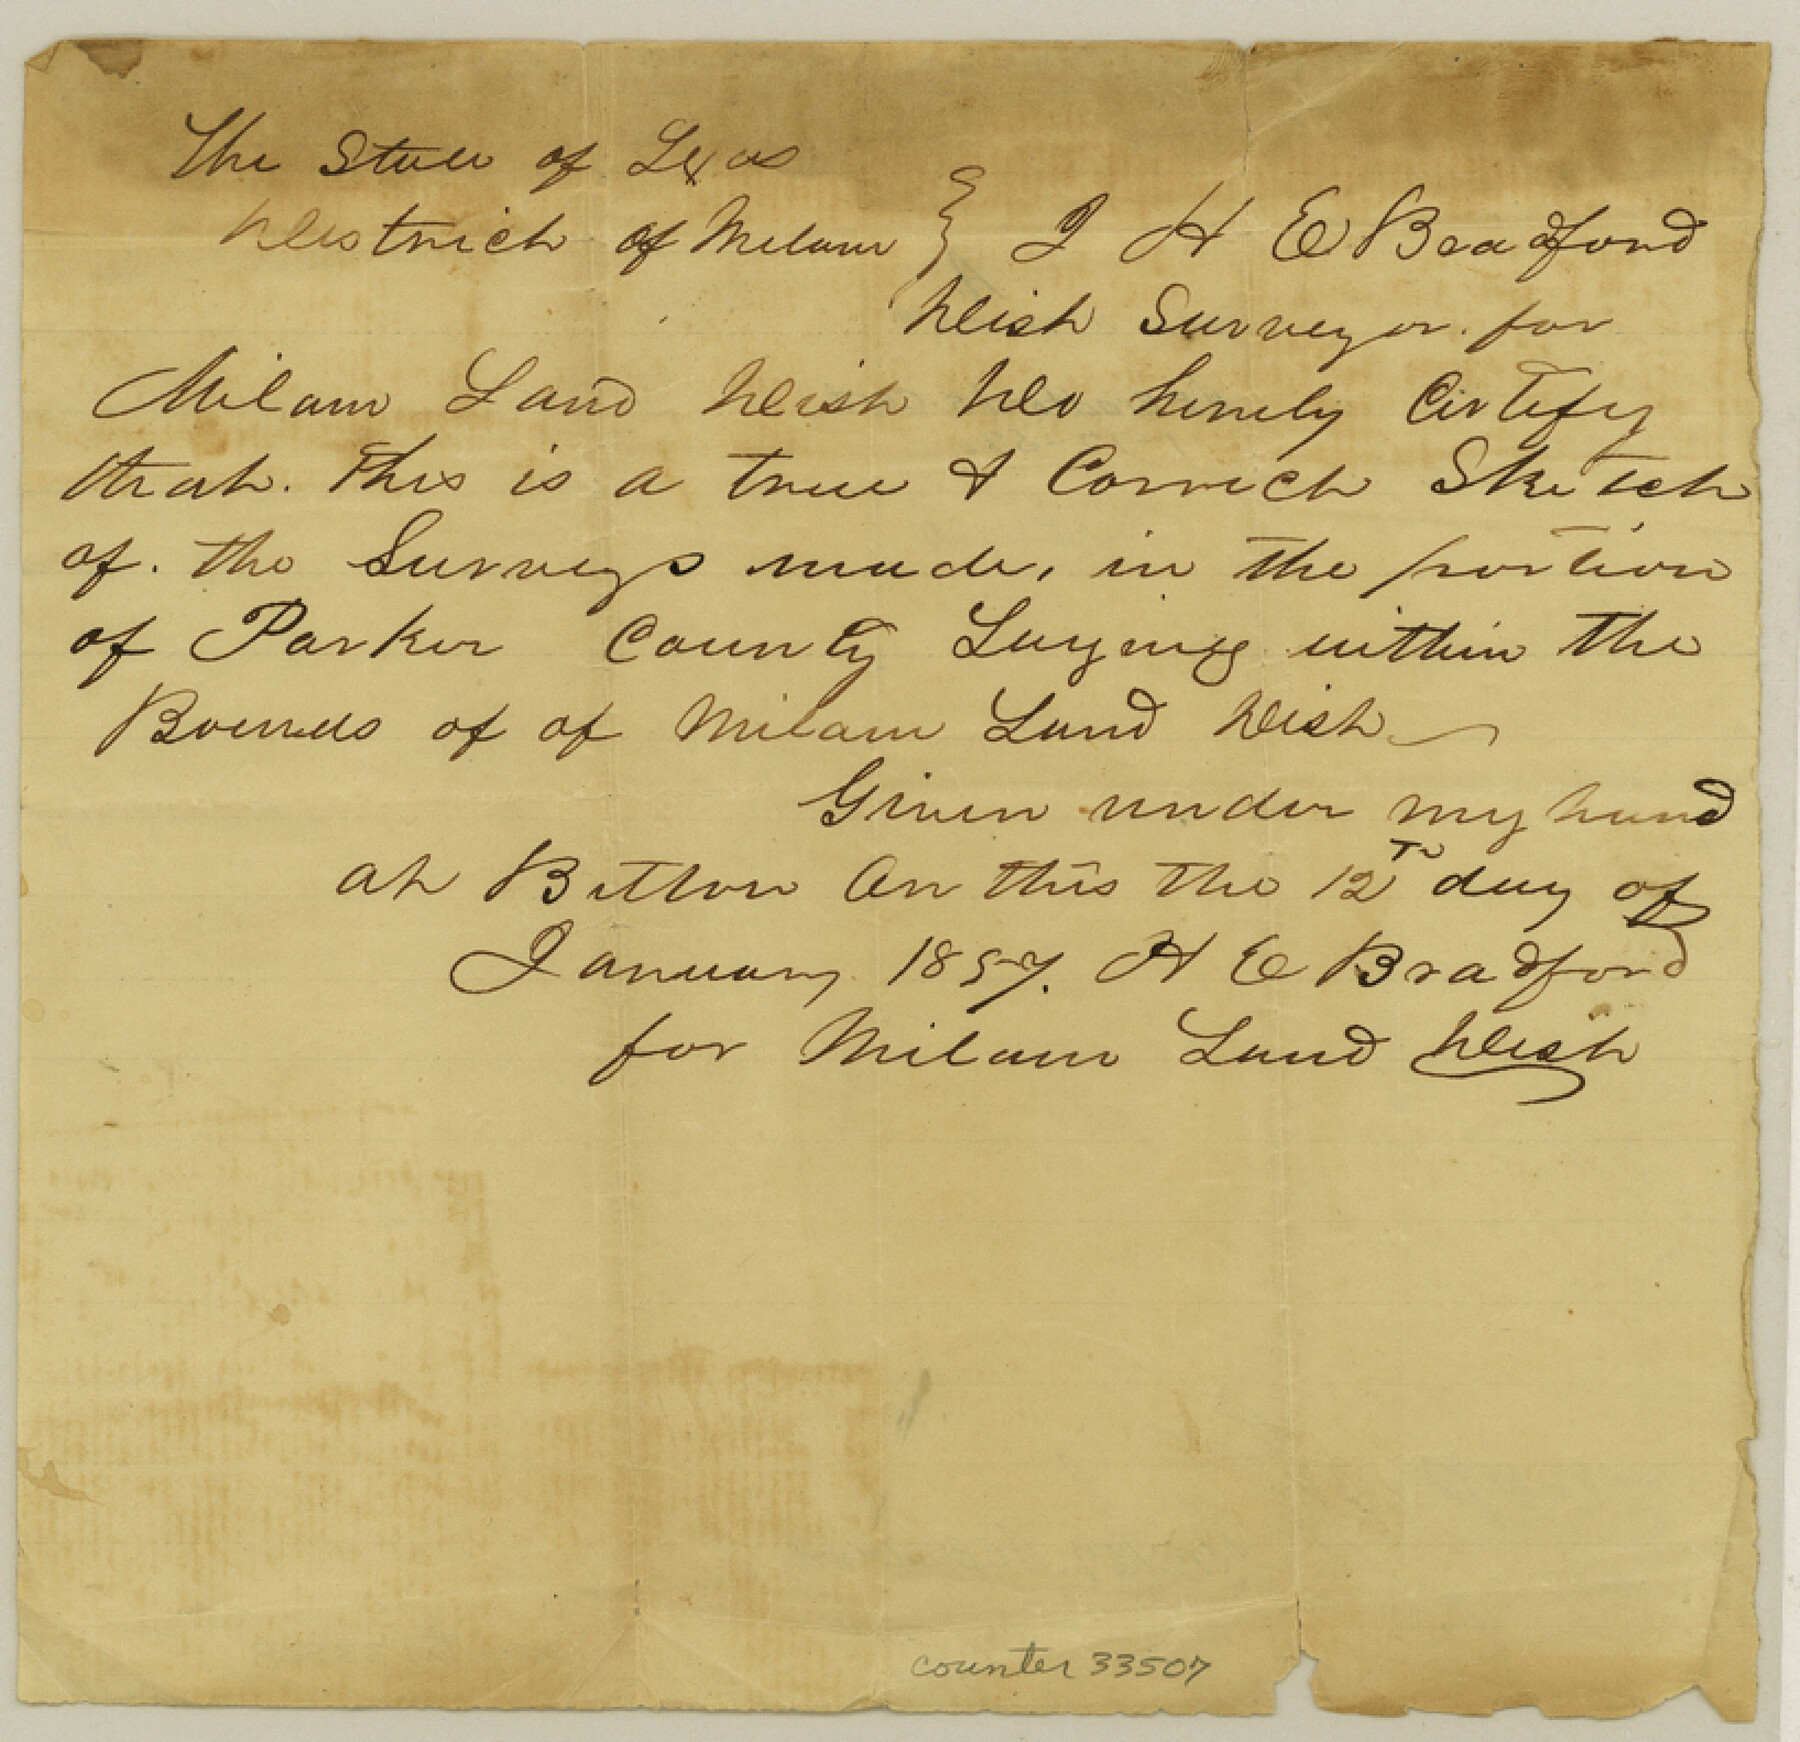 The State of Texas
District of Milam } I H E Bradford
Dist Surveyor for
Milam Land Dist Do hereby Certify
that. This is a true & Correct Sketch
of. the Surveys made, in the portion
of Parker County Laying within the
Bounds of of Milam Land Dist
Given under my hand
at Belton On this the 12th day of
January 1857. H E Bradford
for Milam Land Dist
counter 33507